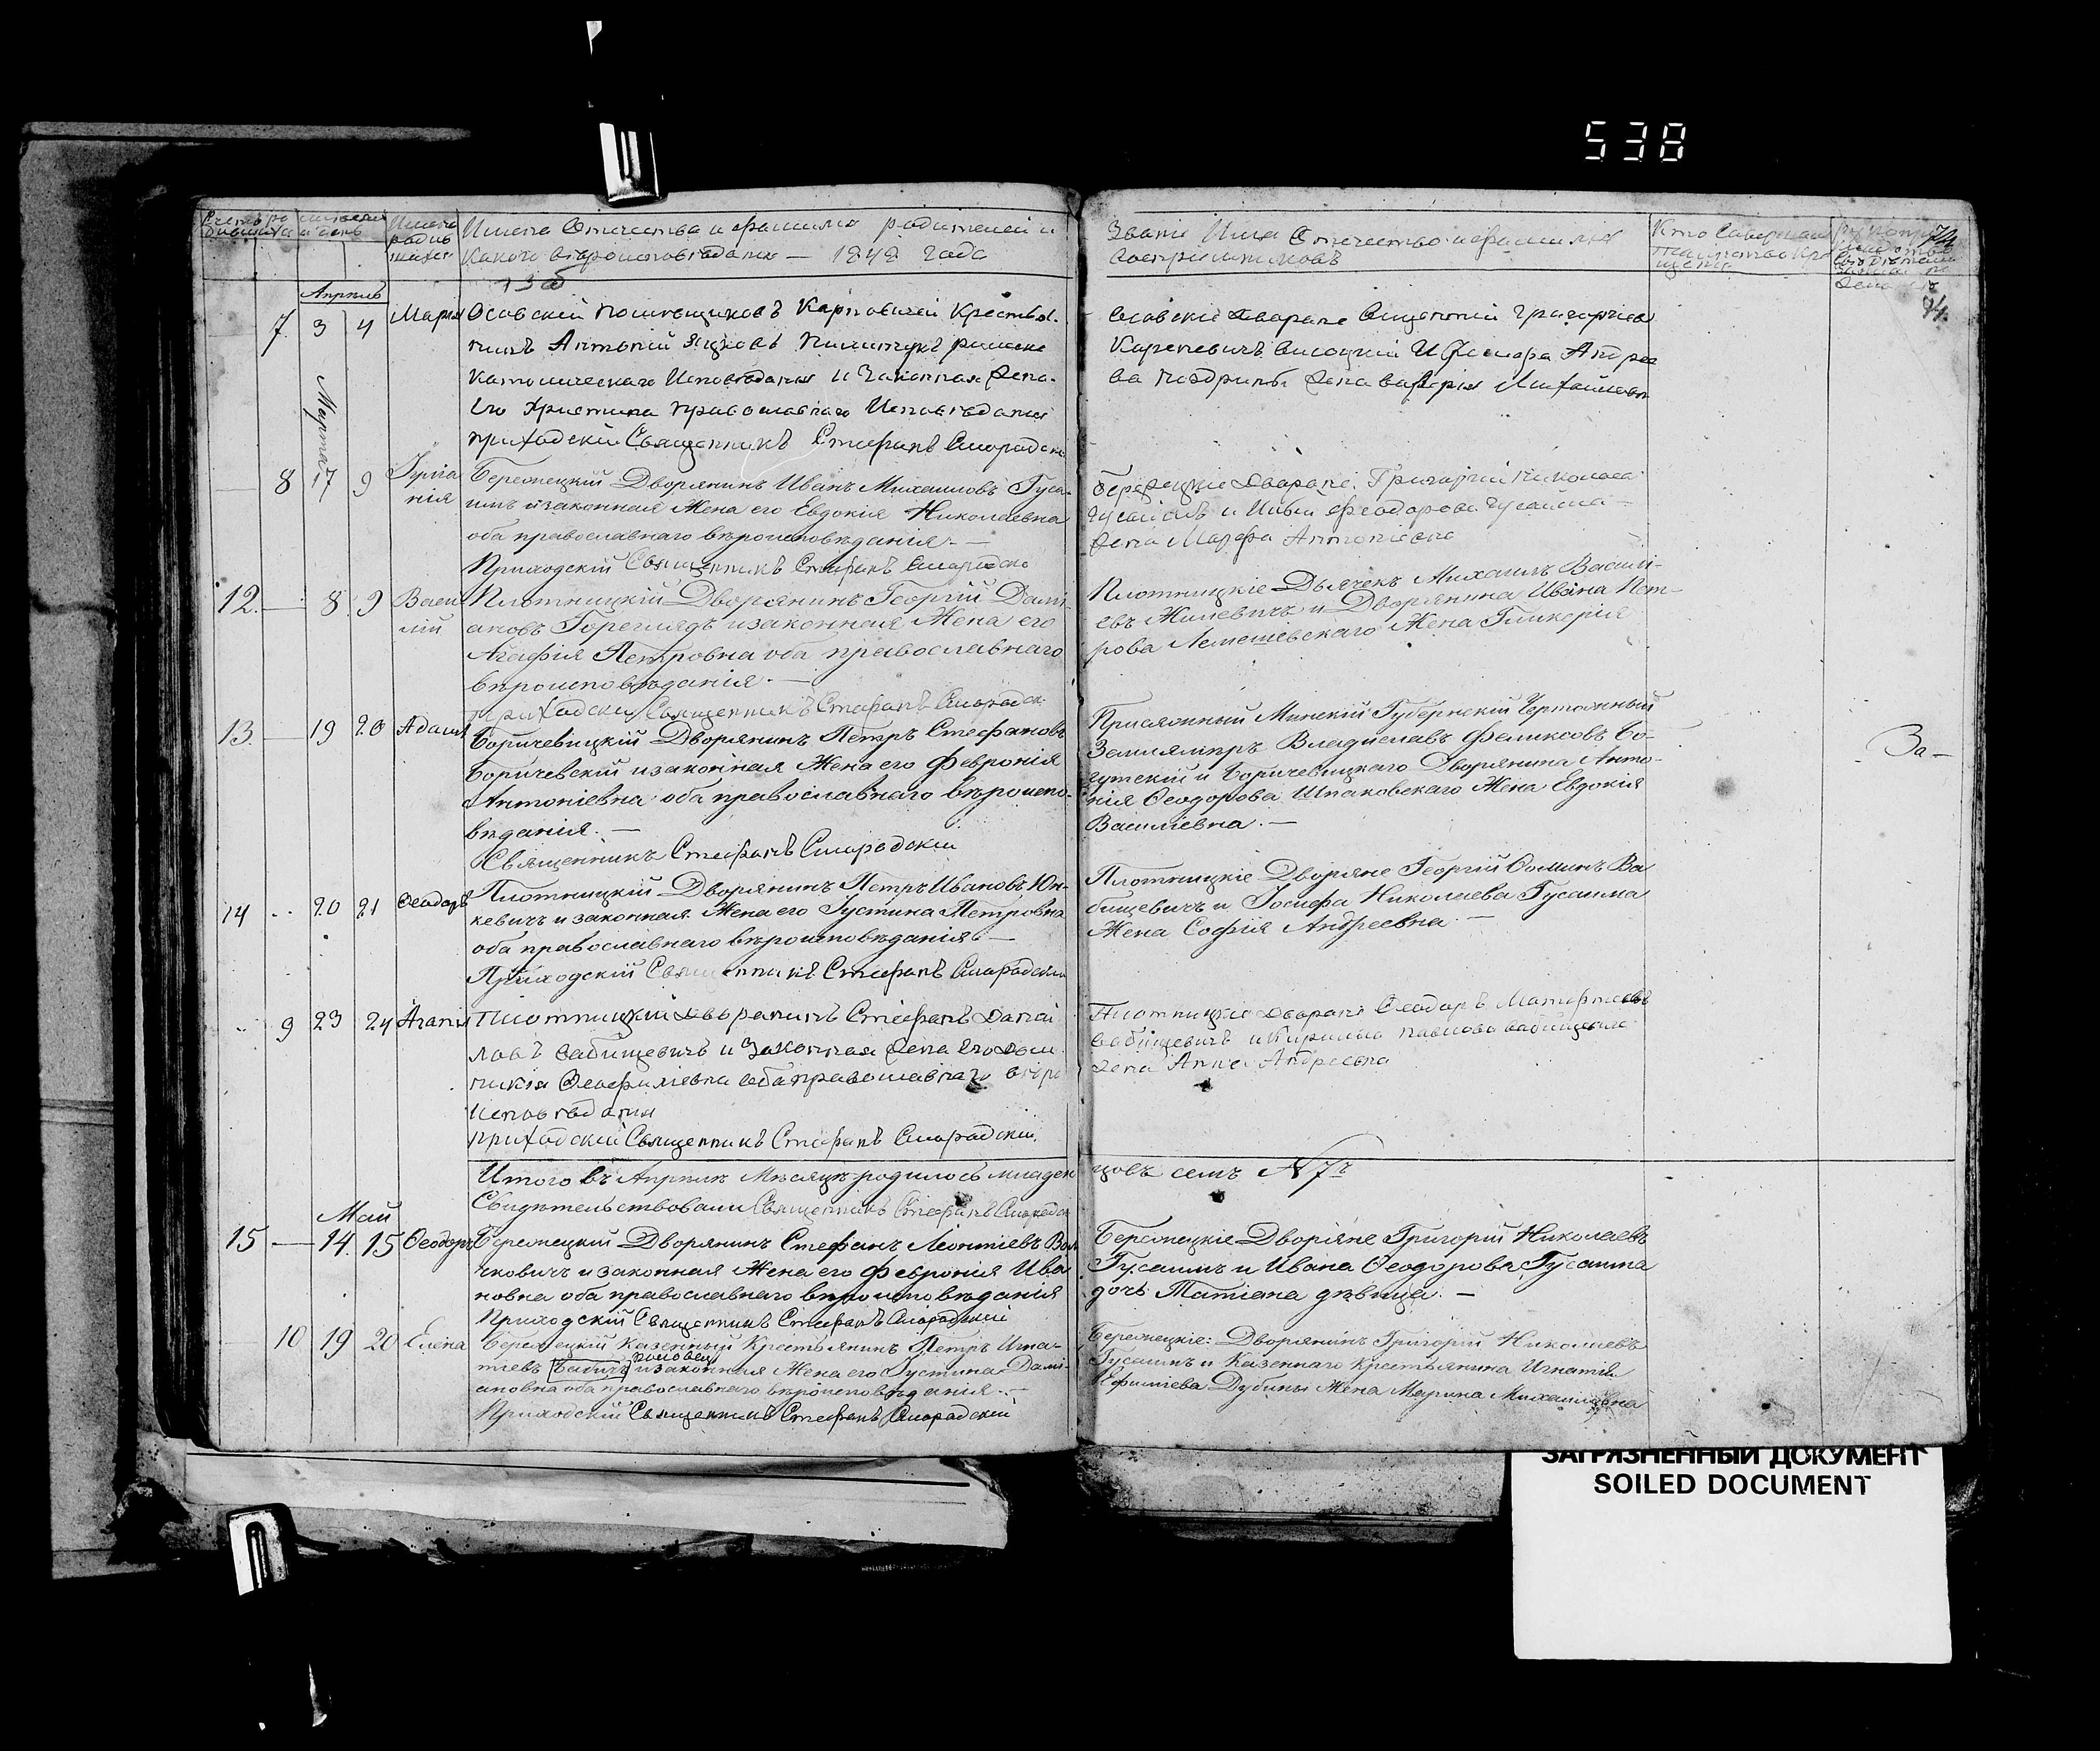 538
Имена Отечества и фамилия родителей и
какого вѣроисповѣдания — 1842 года
Званіе Имя Отечество и фамилия
воспріемниковъ
Кто Совершалъ
74
Апрѣль
7 3 4 Марія Осовскій помѣщиковъ Карповичей Крестья-
нинъ Антоній
католическаго Исповѣдания и Законная Жена
Его Христина православнаго Исповѣдания
приходскій Священникъ Стефанъ Смородскій
Осовскіе Дворяне Викентій Григорьевъ
Жена Валерія Михайлова
Марта
8 17 9 Іулианія Бережецкій Дворянинъ Иванъ Михаиловъ Гуса-
имъ и законная Жена его Евдокія Николаевна
оба православнаго вѣроисповѣданія. —
Приходскій Священникъ Стефанъ Смородскій
Дворяне Григорій Николаевъ
Гусаимъ и Ивана Феодорова Гусаима
Жена Марфа Антоніевна
12. — 8 9 Василій Плотницкій Дворянинъ Георгій Дамі-
ановъ Гореглядъ и законная Жена его
Агафія Петровна оба православнаго
вѣроисповѣданія. —
приходскій Священникъ Стефанъ Смородскій
Плотницкіе Дьячекъ Михаилъ Василі-
евъ Жилевичъ и Дворянина Ивана Пет-
рова Лемешевскаго Жена Гликерія
13. — 19 20 Адамъ Боричевицкій Дворянинъ Петръ Стефановъ
Боричевскій и законная Жена его Февронія
Антоніевна оба православнаго вѣроиспо-
вѣданія. —
Священникъ Стефанъ Смородскій
Присяжный Минскій Губернскій Чертежный
Землемѣръ Владиславъ Феликсовъ Бо-
гутскій и Боричевицкаго Дворянина Анто-
нія Ѳеодорова Шпаковскаго Жена Евдокія
Василіевна. —
За —
14 .. 20 21 Ѳеодоръ Плотницкій Дворянинъ Петръ Ивановъ Юн-
кевичъ и законная Жена его Іустина Петровна
оба православнаго вѣроисповѣданія —
Приходскій Священникъ Стефанъ Смородскій
Плотницкіе Дворяне Георгій Ѳоминъ Ба-
бищевичъ и Іосифа Николаева Гусаима
Жена Софія Андреевна —
.. 9 23 24 Агапія Плотницкій Дворянинъ Стефанъ Даніи-
ловъ Бабищевичъ и Законная Жена Его Дом-
никія Ѳеофиліевна оба православнаго вѣро
Исповѣдания
приходскій Священникъ Стефанъ Смородскій
Плотницкіе Дворяне Ѳеодоръ Матѳеевъ
Бабищевичъ и Кирилла Павлова Бабищевича
Жена Анна Андреевна
Итого въ Апрѣлѣ Мѣсяцѣ родилось младен
цовъ семъ N 7ъ
Свидѣтельствовали Священникъ Стефанъ Смородскій
Май
15 — 14 15 Ѳеодоръ Бережецкій Дворянинъ Стефанъ Леонтіевъ Вол
чковичъ и законная Жена его Февронія Ива
новна оба православнаго вѣроисповѣданія
Приходскій Священникъ Стефанъ Смородскій
Бережецкіе Дворяне Григорій Николаевъ
Гусаимъ и Ивана Ѳеодорова Гусаима
дочь Татіана дѣвица. —
10 19 20 Елена Бережецкій Казенный Крестьянинъ Петръ Игна-
тіевъ Бабичъ и законная Жена его Іустина Дамі-
ановна оба православнаго вѣроисповѣданія. —
Приходскій Священникъ Стефанъ Смородскій
Бережецкіе: Дворянинъ Григорій Николаевъ
Гусаимъ и Казеннаго Крестьянина Игнатія
Ефиміева Дубины Жена Марина Михаиловна
ЗАГРЯЗНЕННЫЙ ДОКУМЕНТ
SOILED DOCUMENT